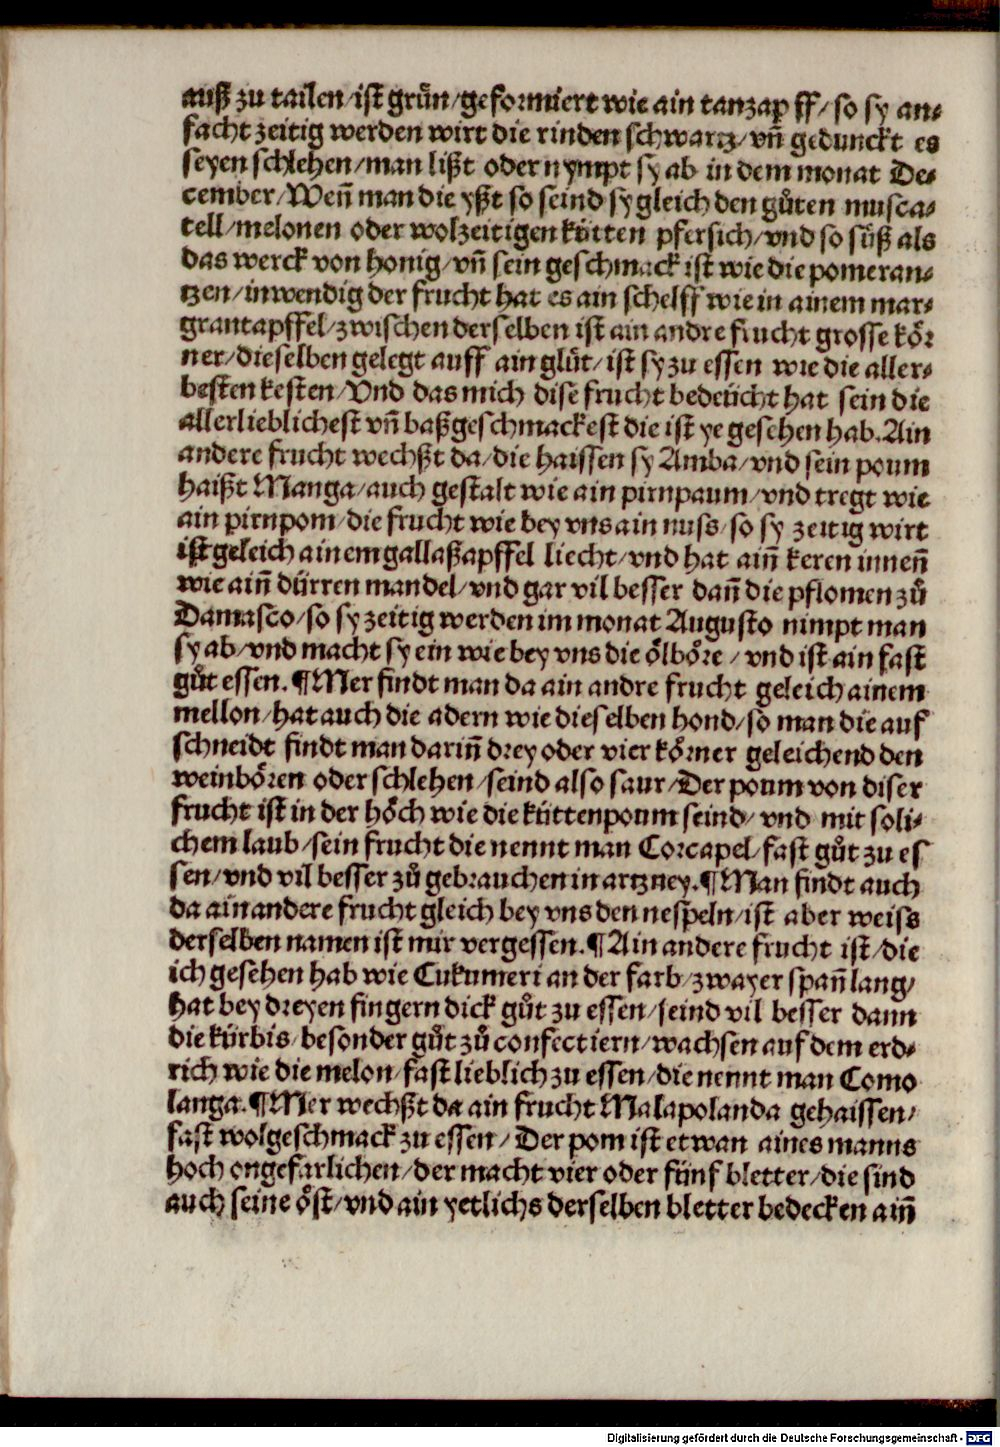 auß zu tailen/ist grün/geformiert wie ain tanzap ff/so sy an⸗
facht zeitig werden wirt die rinden schwartz/vñ gedunckt es
seyen schlehen/man lißt oder nympt sy ab in dem monat De⸗
cember/Weñ man die yßt so seind sy gleich den gůten musca⸗
tell/melonen oder wolzeitigen kütten pfersich/vnd so süß als
das werck von honig/vñ sein geschmack ist wie die pomeran⸗
tzen/inwendig der frucht hat es ain schelff wie in ainem mar⸗
grantapffel/zwischen derselben ist ain andre frucht grosse kör
ner/dieselben gelegt auff ain glůt/ist sy zu essen wie die aller⸗
besten kesten/Vnd das mich dise frucht bedeücht hat sein die
allerlieblichest vñ baßgeschmackest die ist ye gesehen hab.Ain
andere frucht wechßt da/die haissen sy Amba/vnd sein poum
haißt Manga/auch gestalt wie ain pirnpaum/vnd tregt wie
ain pirnpom/die frucht wie bey vns ain nuss/so sy zeitig wirt
ist geleich ainem gallaßapffel liecht/vnd hat aiñ keren inneñ
wie aiñ dürren mandel/vnd gar vil besser dañ die pflomen zů
Damasco/so sy zeitig werden im monat Augusto nimpt man
sy ab/vnd macht sy ein wie bey vns die ölböre/vnd ist ain fast
gůt essen.¶Mer findt man da ain andre frucht geleich ainem
mellon/hat auch die adern wie dieselben hond/so man die auf
schneidt findt man dariñ drey oder vier körner geleichend den
weinbören oder schlehen/seind also saur/Der poum von diser
frucht ist in der höch wie die küttenpoum seind/vnd mit soli⸗
chem laub/sein frucht die nennt man Corcapel/fast gůt zu es
sen/vnd vil besser zů gebrauchen in artzney.¶Man findt auch
da ain andere frucht gleich bey vns den nespeln/ist aber weiss
derselben namen ist mir vergessen.¶Ain andere frucht ist/die
ich gesehen hab wie Cukumeri an der farb/zwayer spañ lang/
hat bey dreyen fingern dick gůt zu essen/seind vil besser dann
die kürbis/besonder gůt zů confectiern/wachsen auf dem erd⸗
rich wie die melon/fast lieblich zu essen/die nennt man Como
langa.¶Mer wechßt da ain frucht Malapolanda gehaissen/
fast wolgeschmack zu essen/Der pom ist etwan aines manns
hoch ongefarlichen/der macht vier oder fünf bletter/die sind
auch seine öst/vnd ain yetlichs derselben bletter bedecken aiñ
Digitalisierung gefördert durch die Deutsche Forschungsgemeinschaft - DFG